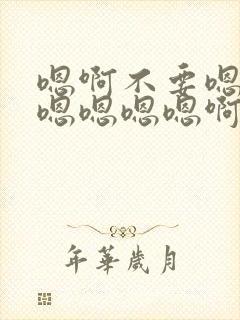 嗯啊不要嗯
嗯嗯嗯嗯啊
年華歲月